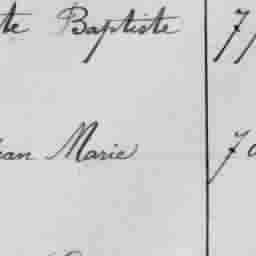 te Baptiste 7
ean Marie 7